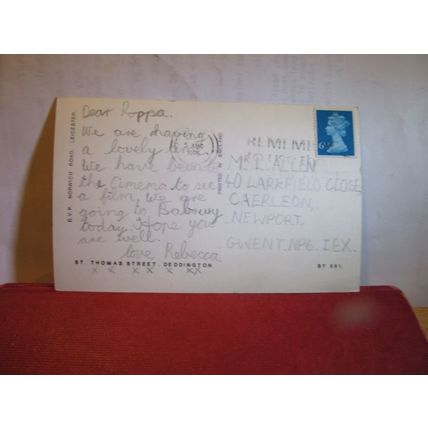 Dear Poppa.
We are having
a lovely time
We have been to
the Cinema to see
a film, we are
going to Banbury
today. Hope you
are well.
love Rebecca
x x x x x xx
ST. THOMAS STREET, DEDDINGTON
B.V.P. NORWICH ROAD, LEICESTER
PRINTED IN ENGLAND
REMEM
Mr L. ALLEN
40 LARKFIELD CLOSE
CAERLEON,
NEWPORT,
GWENT. NP6. 1EX.
ST 681